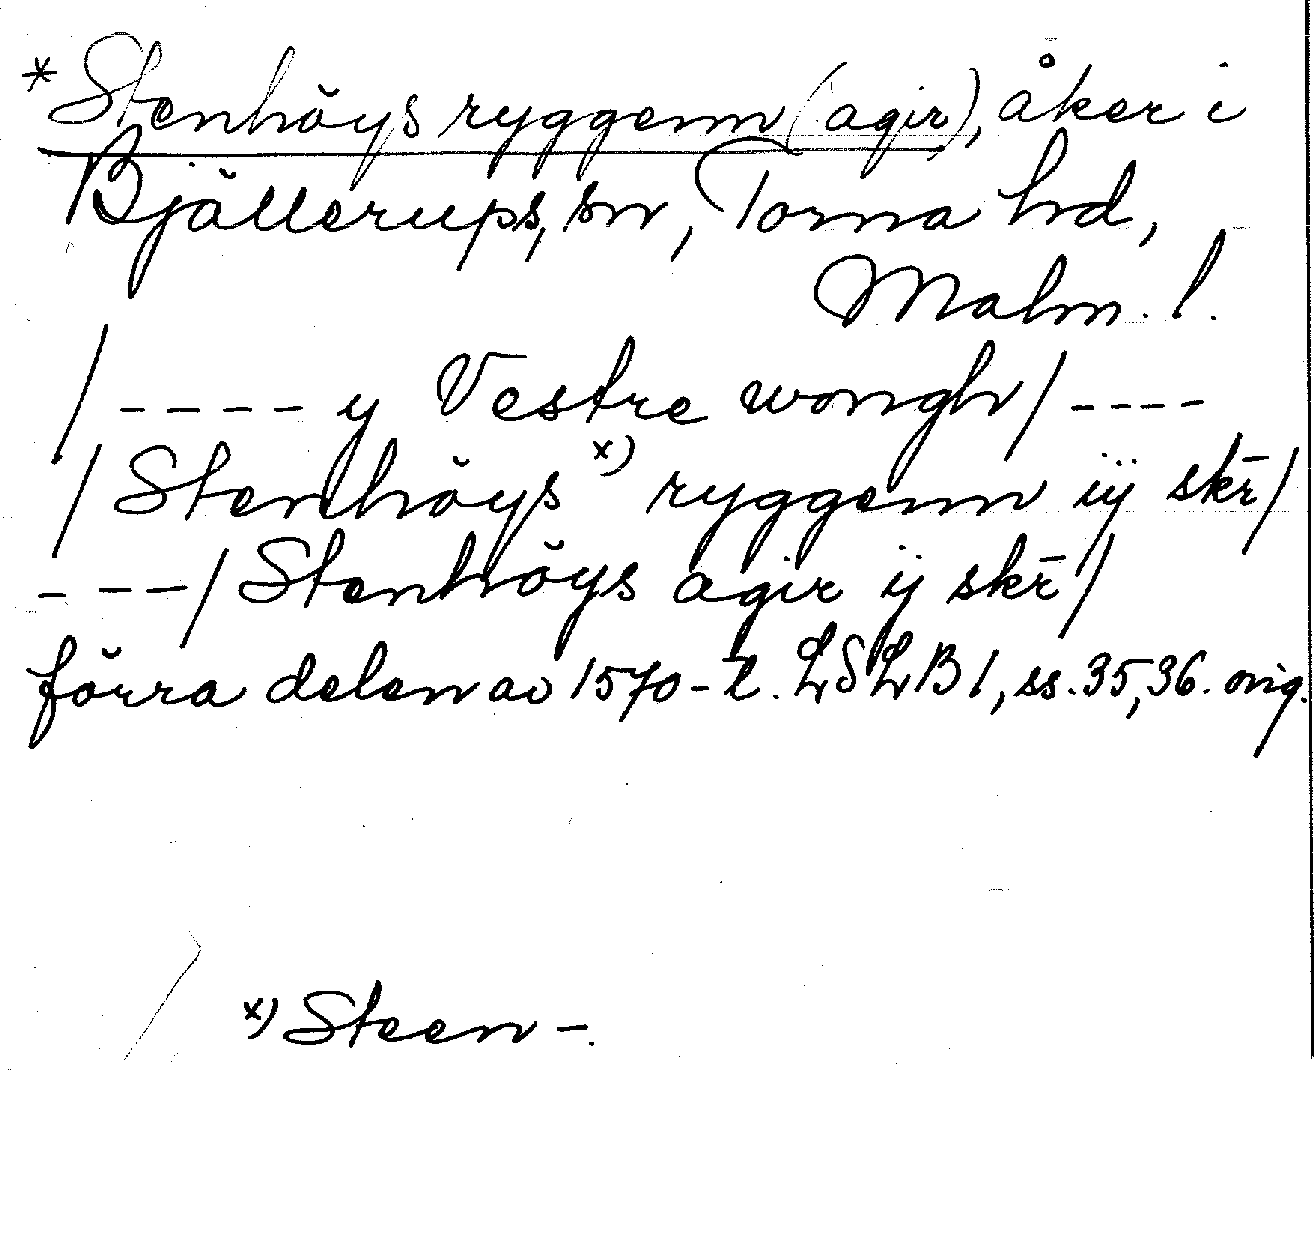 *Stenhöys ryggenn (agir), åker i
Bjällerups, sn, Torna hd,
Malm. l.
/ - - - - y Vestre wongh / - - - -
/ Stenhöys x) ryggenn iÿ skr̄ /
- - - / Stenhöys agir ÿ skr̄ /
förra delen av 1570-t. LSLB 1, ss. 35, 36. orig.
x) Steen -.